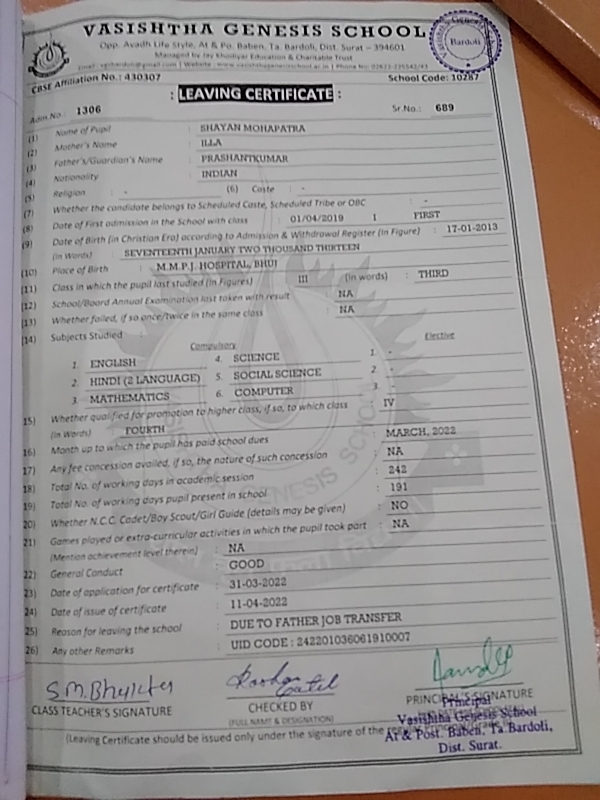 VASISHTHA GENESIS SCHOOL
Opp. Avadh Life Style, At & Po. Baben, Ta. Bardoli, Dist. Surat – 394601
Managed by Jay Khodiyar Education & Charitable Trust
Bardoli
CBSE Affiliation No.: 430307 School Code: 10287
: LEAVING CERTIFICATE :
Adm.No.: 1306 Sr.No.: 689
(1) Name of Pupil : SHAYAN MOHAPATRA
(2) Mother's Name : ILLA
(3) Father's/Guardian's Name : PRASHANTKUMAR
(4) Nationality : INDIAN
(5) Religion : - (6) Caste : -
(7) Whether the candidate belongs to Scheduled Caste, Scheduled Tribe or OBC : -
(8) Date of First admission in the School with class : 01/04/2019 I FIRST
(9) Date of Birth (in Christian Era) according to Admission & Withdrawal Register (In Figure) : 17-01-2013
(In Words) : SEVENTEENTH JANUARY TWO THOUSAND THIRTEEN
(10) Place of Birth : M.M.P.J. HOSPITAL, BHUJ
(11) Class in which the pupil last studied (In Figures) III (In words) : THIRD
(12) School/Board Annual Examination last taken with result : NA
(13) Whether failed, if so once/twice in the same class : NA
(14) Subjects Studied :
Compulsory Elective
1. ENGLISH 4. SCIENCE 1. -
2. HINDI (2 LANGUAGE) 5. SOCIAL SCIENCE 2. -
3. MATHEMATICS 6. COMPUTER 3. -
15) Whether qualified for promotion to higher class, if so, to which class IV
(In Words) FOURTH
16) Month up to which the pupil has paid school dues : MARCH, 2022
17) Any fee concession availed, if so, the nature of such concession : NA
18) Total No. of working days in academic session : 242
19) Total No. of working days pupil present in school : 191
20) Whether N.C.C. Cadet/Boy Scout/Girl Guide (details may be given) : NO
21) Games played or extra-curricular activities in which the pupil took part : NA
(Mention achievement level therein) : NA
22) General Conduct : GOOD
23) Date of application for certificate : 31-03-2022
24) Date of issue of certificate : 11-04-2022
25) Reason for leaving the school : DUE TO FATHER JOB TRANSFER
26) Any other Remarks : UID CODE : 242201036061910007
CLASS TEACHER'S SIGNATURE CHECKED BY PRINCIPAL'S SIGNATURE
(FULL NAME & DESIGNATION)
Principal
Vasishtha Genesis School
At & Post. Baben, Ta. Bardoli,
Dist. Surat.
(Leaving Certificate should be issued only under the signature of the